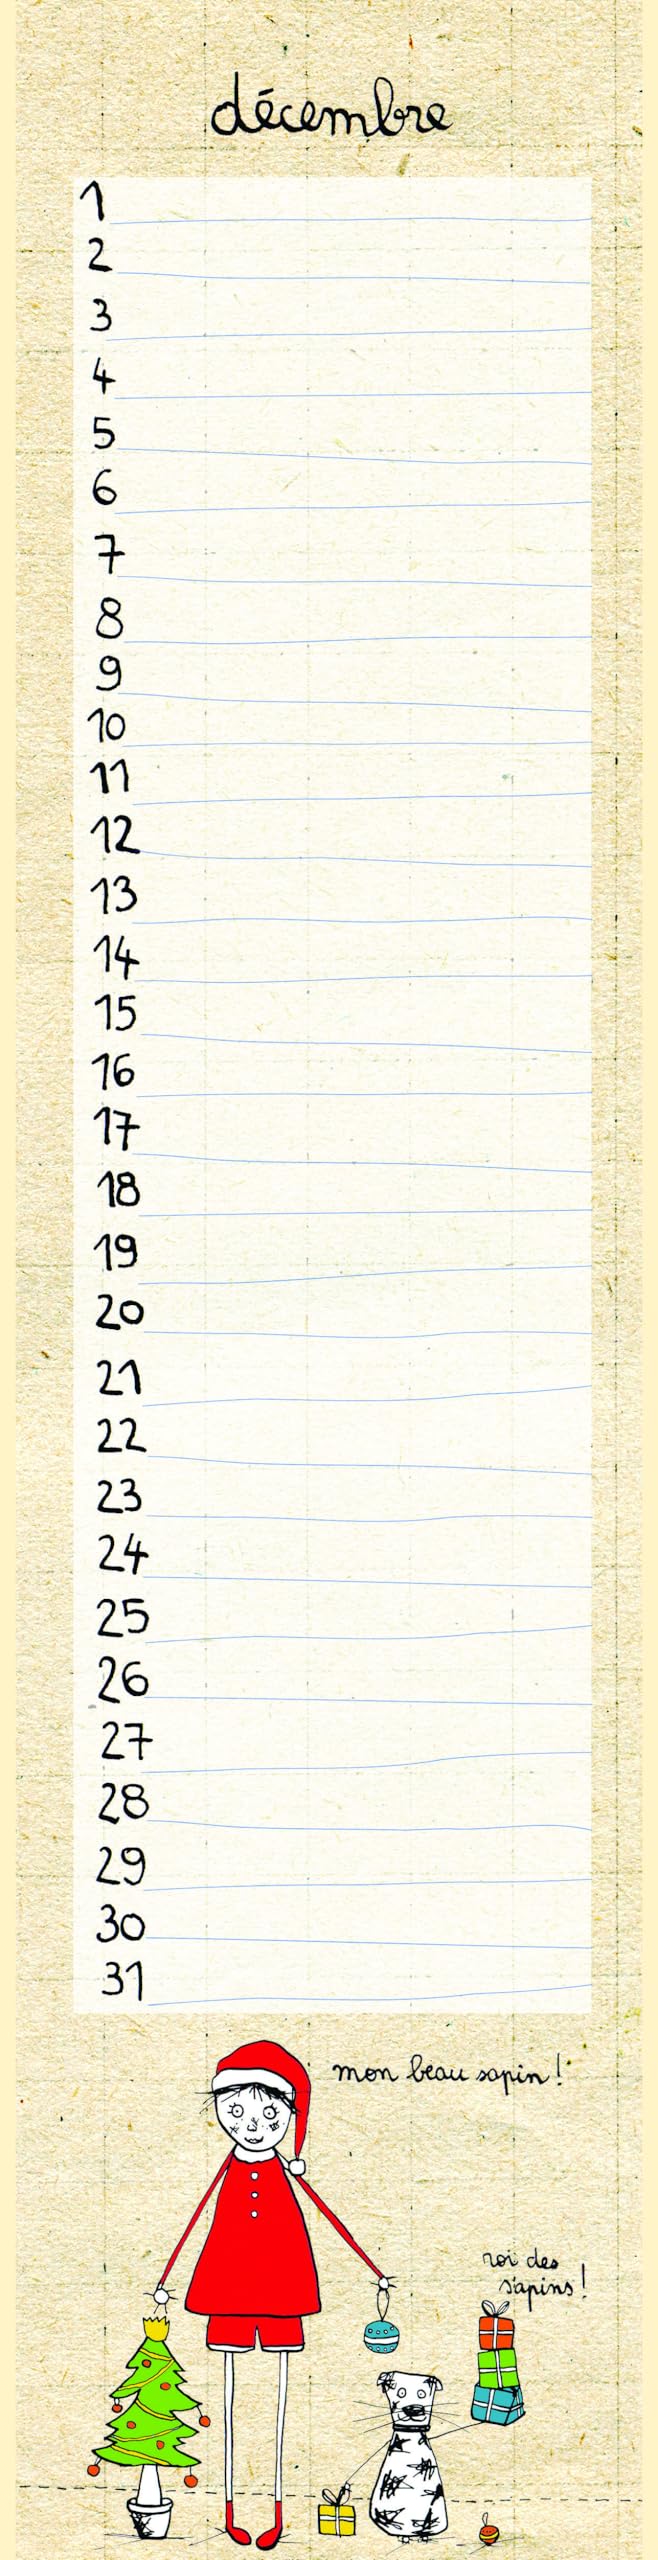 décembre
1
2
3
4
5
6
7
8
9
10
11
12
13
14
15
16
17
18
19
20
21
22
23
24
25
26
27
28
29
30
31
mon beau sapin !
roi des
sapins !